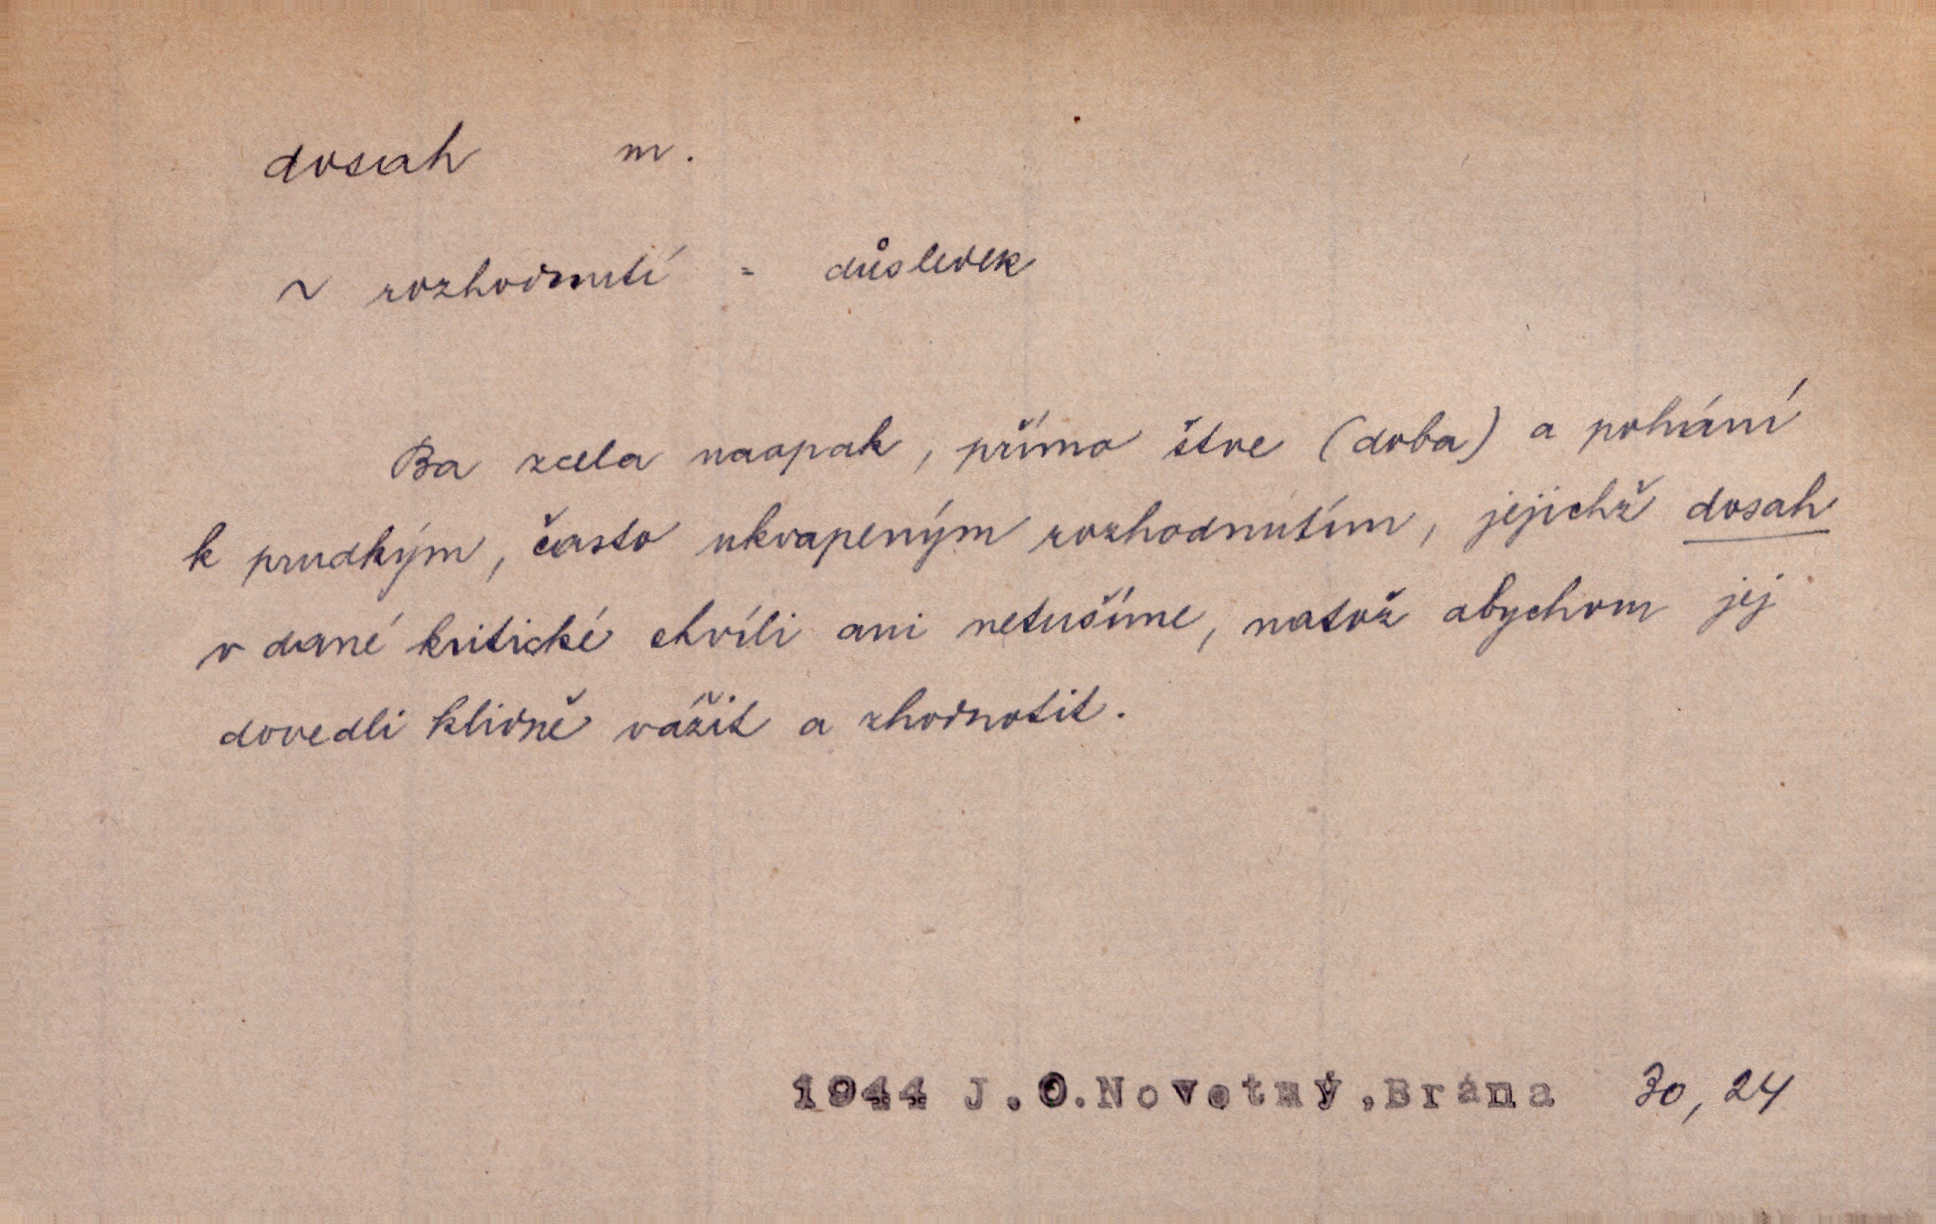 dosah m.
~ rozhodnutí = důsledek
Ba zcela naopak, přímo štve (doba) a pohání
k prudkým, často ukvapeným rozhodnutím, jejichž dosah
v dané kritické chvíli ani netušíme, natož abychom jej
dovedli klidně vážit a zhodnotit.
1944 J.O.Novotný,Brána 30, 24